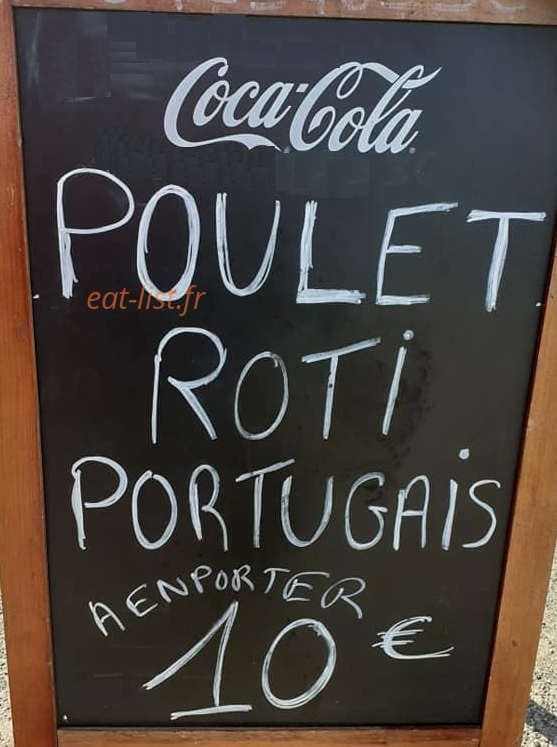 Coca-Cola
POULET
eat-list.fr
ROTi
PORTUGAiS
A ENPORTER
10 €